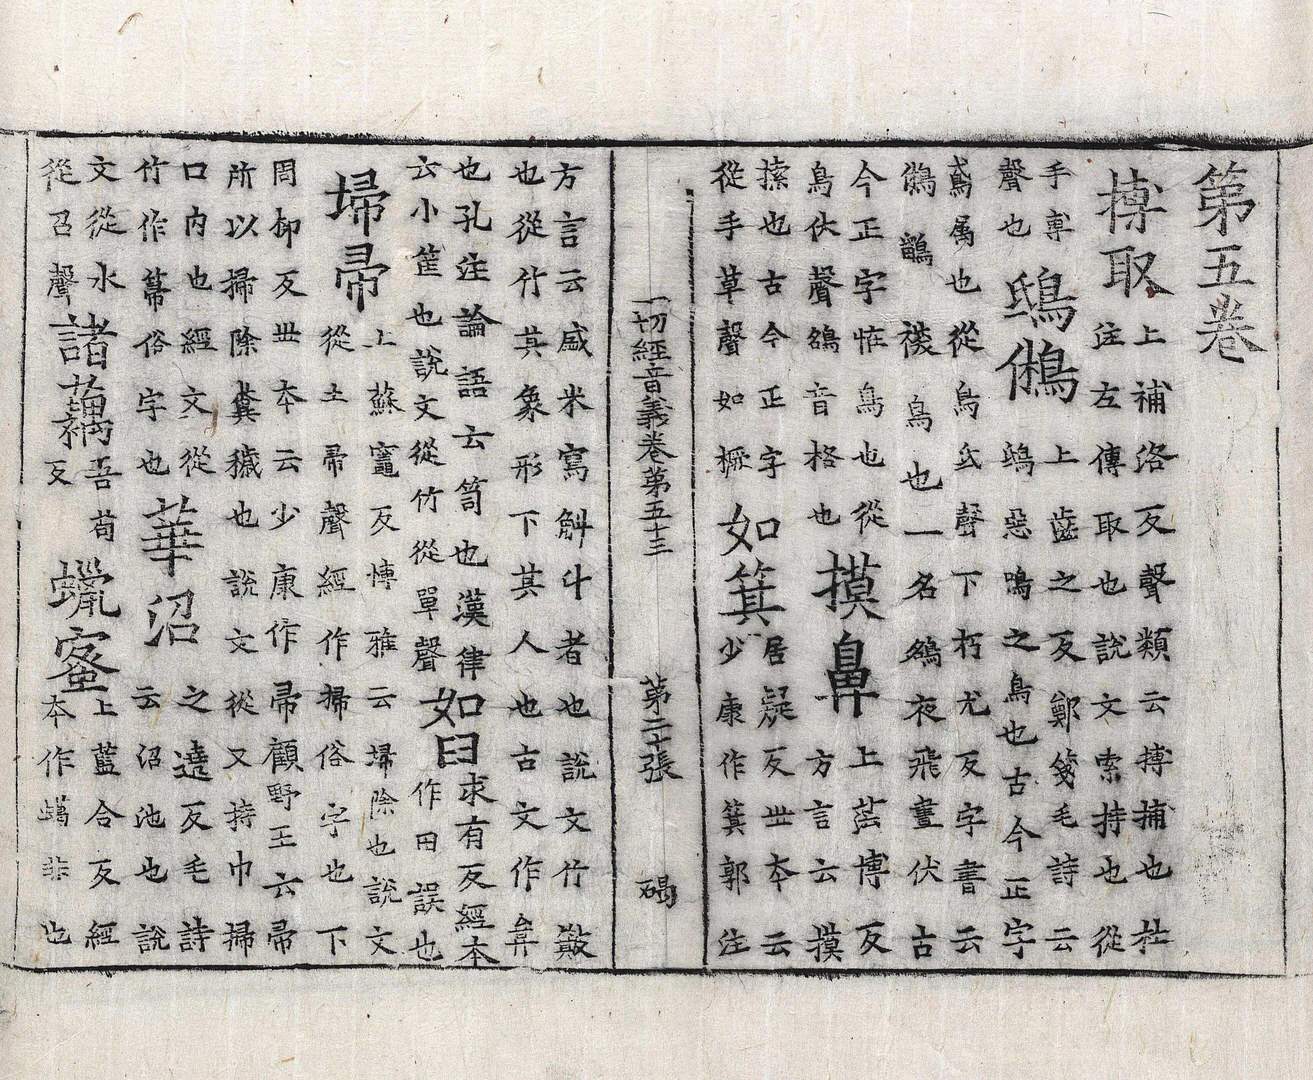 第五卷
搏取
上補洛反聲類云搏捕也杜
注左傳取也說文索持也從
手尃
聲也
鵄鵂
上齒之反鄭箋毛詩云
鵄惡鳴之鳥也古今正字
鳶属也從鳥氐聲下朽尤反字書云
鵂鶹襪鳥也一名鵅夜飛晝伏古
今正字恠鳥也從
鳥伏聲鵅音格也
摸鼻
上莣博反
方言云摸
㨞也古今正字
從手草聲如橛
如箕
居疑反丗本云
少康作箕郭注
一切經音義卷第五十三 第二十張 碣
方言云咸米寫斛斗者也說文竹簸
也從竹其象形下其人也古文作
也孔注論語云笥也漢律
云小筐也說文從竹從單聲
如臼
求有反經本
作田誤也
埽帚
上蘇竈反博雅云埽除也說文
從土帚聲經作掃俗字也下
周柳反丗本云少康作帚顧野王云帚
所以掃除糞穢也說文從又持巾掃
口內也經文從
竹作箒俗字也
華沼
之遶反毛詩
云沼池也說
文從水
從召聲
諸藕
吾苟
反
蠟蜜
上藍合反經
本作蠟非也